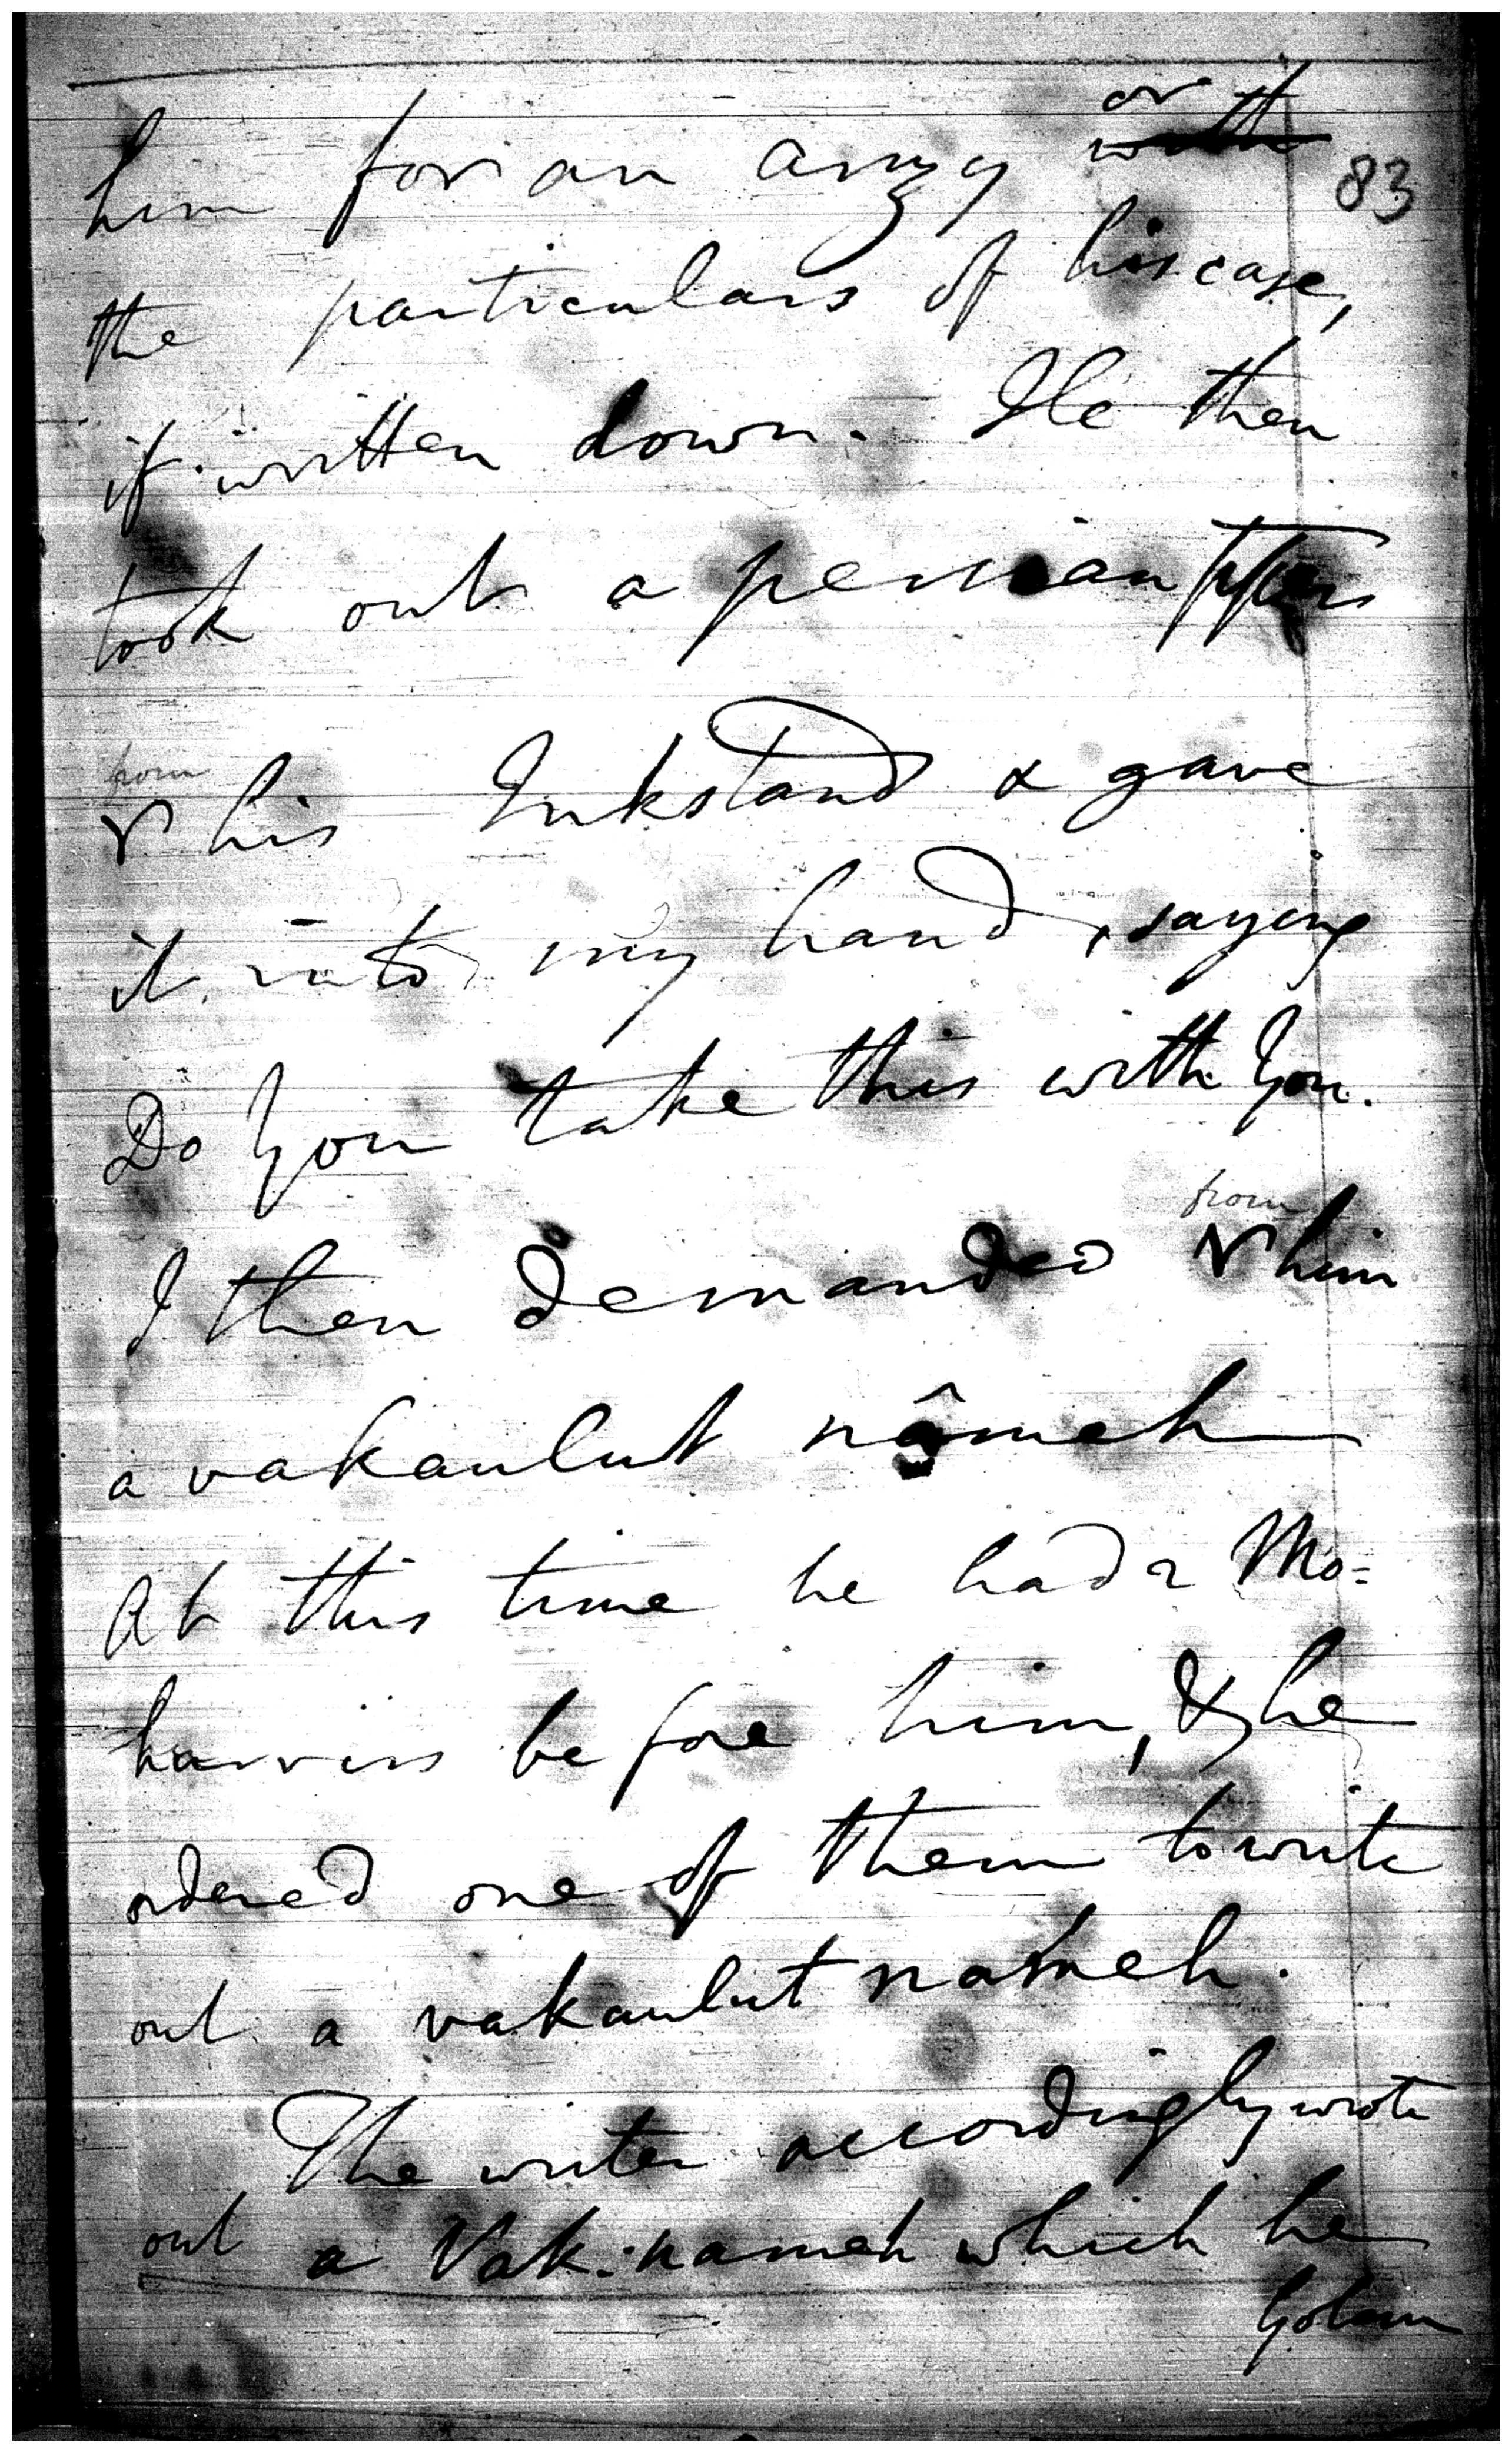 or
him for an arzy with 83
the particulars of his case,
if written down. He then
took out a persian
from
his Inkstand & gave
it into my hand, saying
Do You take this with You.
from
I then demanded him
a vakaulut nâmeh
At this time he had 2 Mo=
harrirs before him, & he
ordered one of them to write
out a vakaulut nameh.
The writer accordingly wrote
out a Vak: nameh which he
Golam